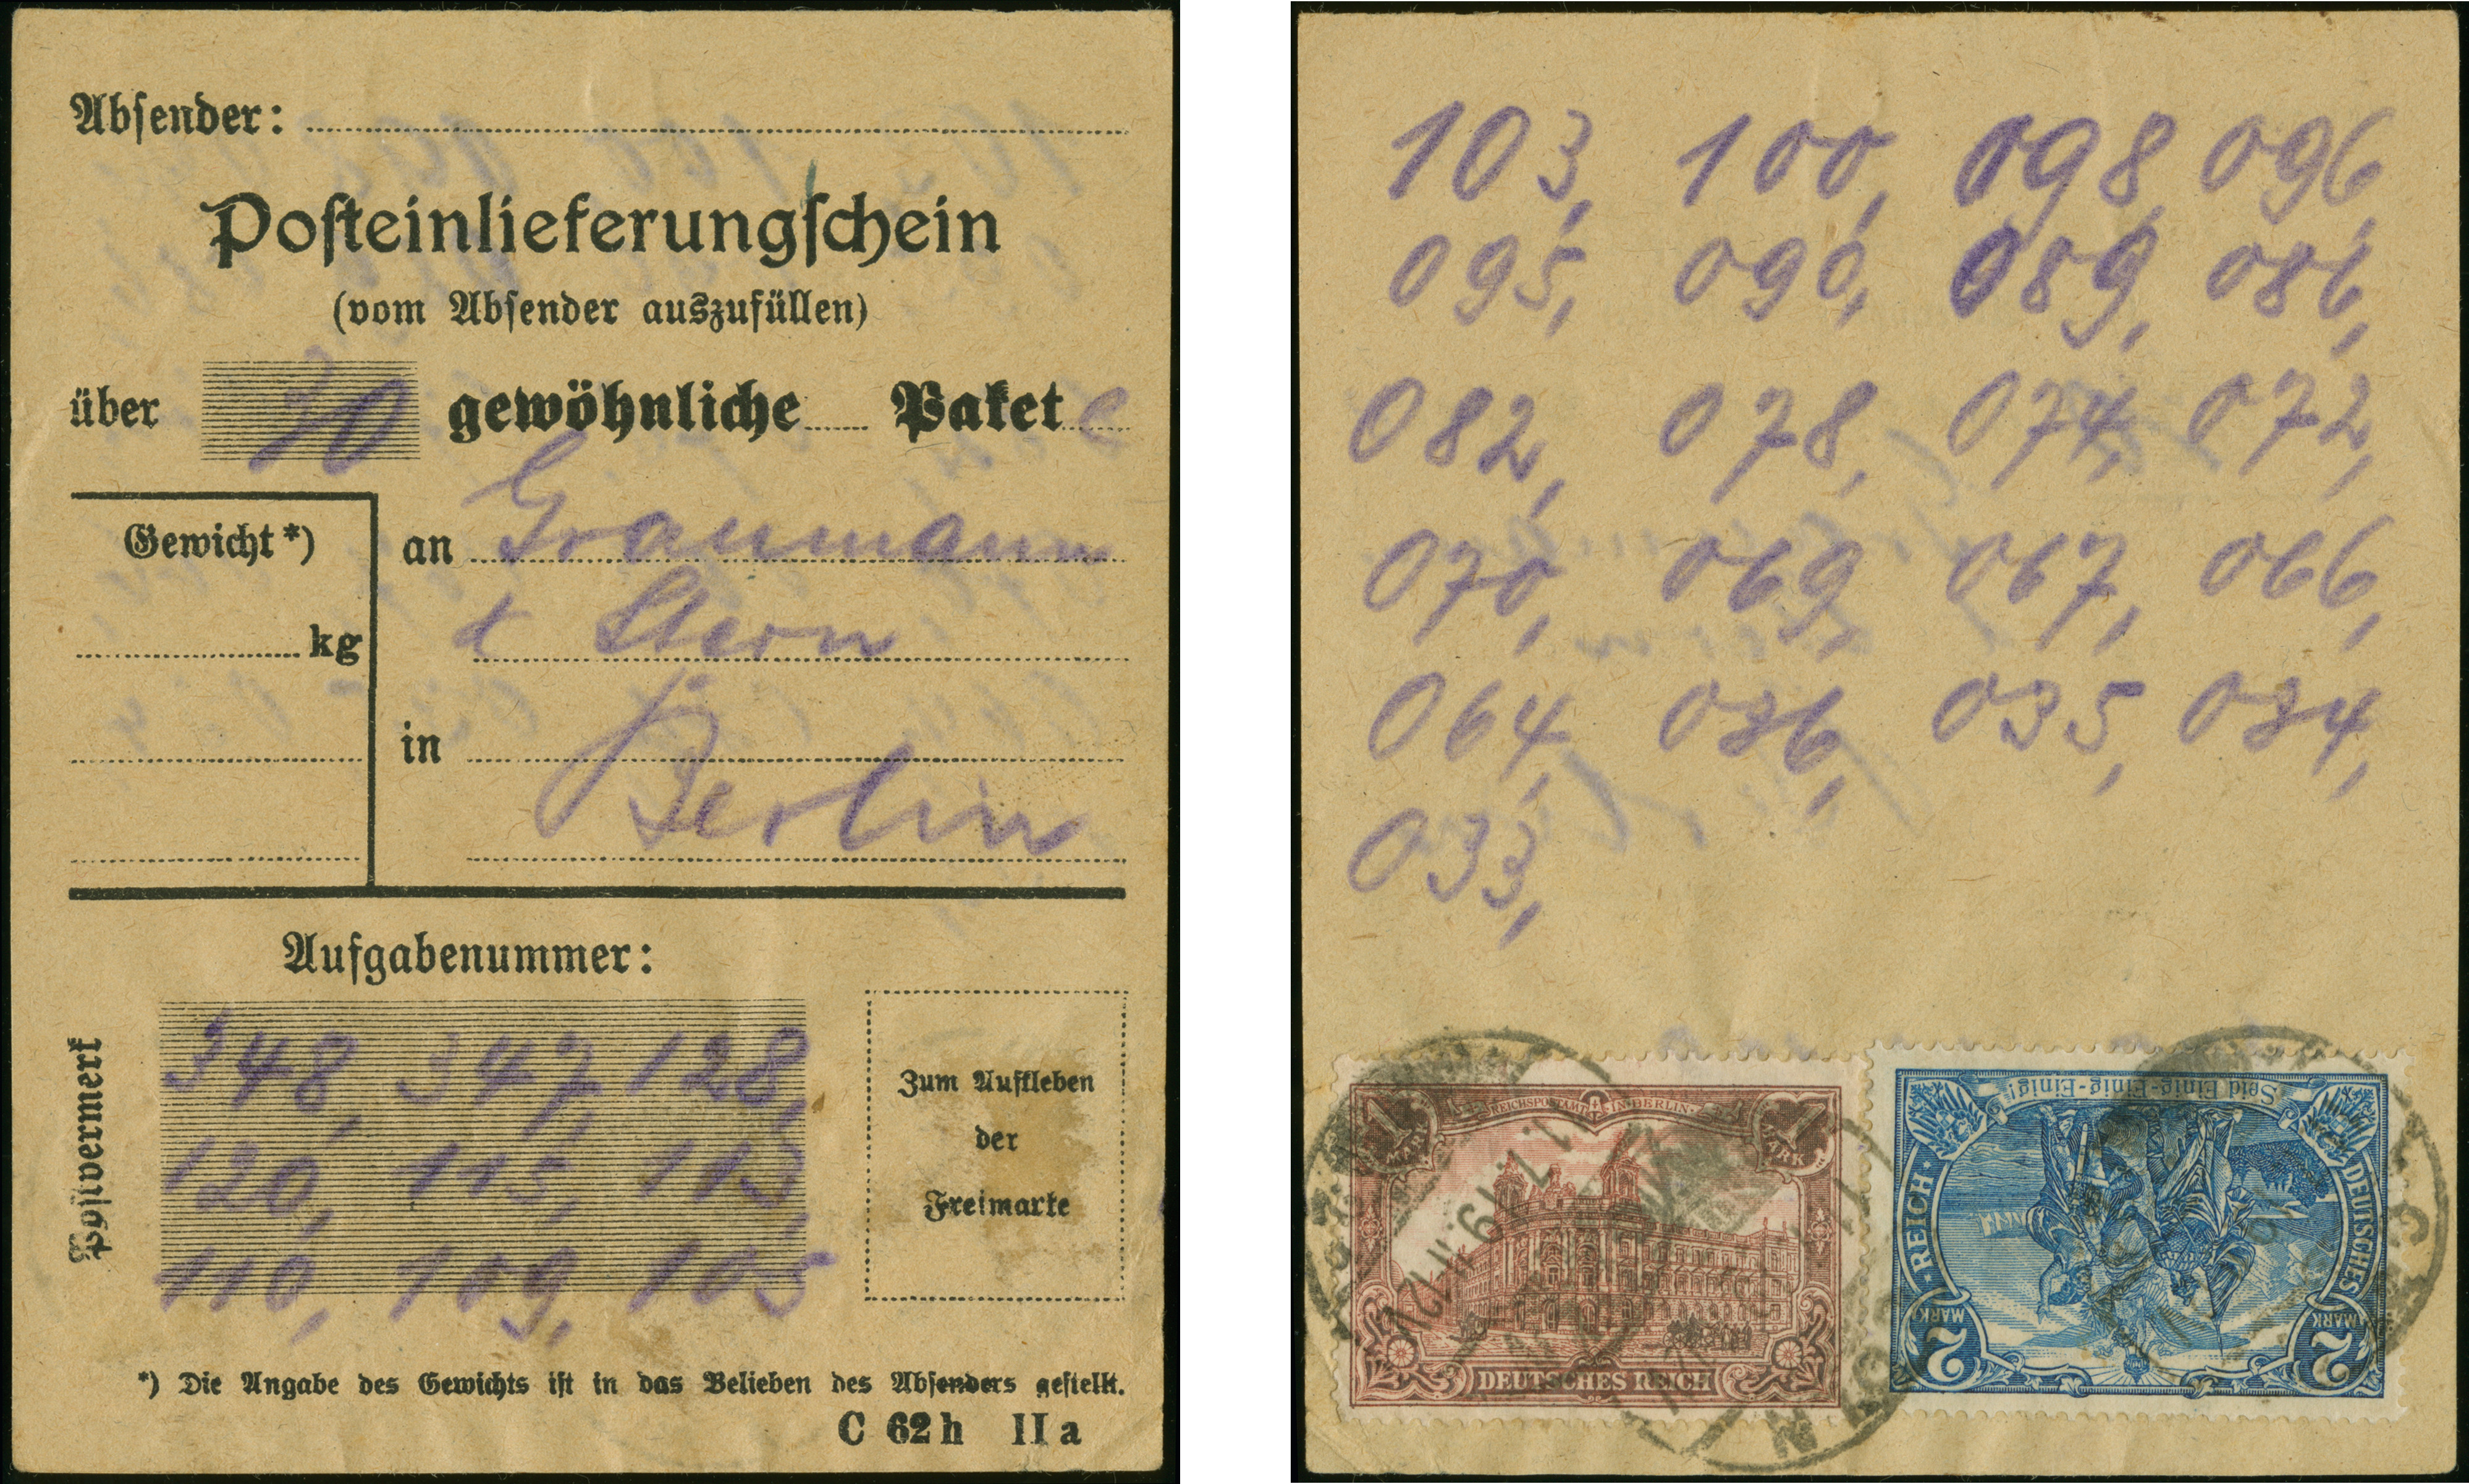 Absender:
Posteinlieferungschein
(vom Absender auszufüllen)
über 30 gewöhnliche Pakete
Gewicht*)
kg
an Graumann
& Stern
in
Berlin
Aufgabenummer:
Postvermerk
348, 347, 128,
120, 115, 113,
110, 109, 105
Zum Aufkleben
der
Freimarke
*) Die Angabe des Gewichts ist in das Belieben des Absenders gestellt.
C 62 h II a
103, 100, 098, 096,
095, 090, 089, 086,
082, 078, 074, 072,
070, 069, 067, 066,
064, 036, 035, 034,
033,
1 MARK REICHSPOSTAMT IN BERLIN 1 MARK
DEUTSCHES REICH
Seid Einig-Einig-Einig!
DEUTSCHES REICH
2 MARK 2 MARK